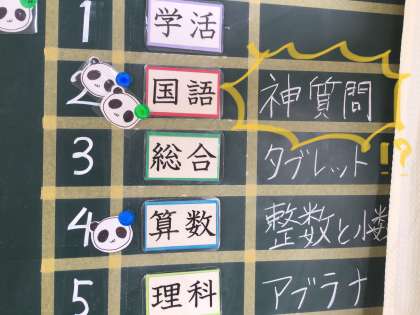 1 学活
2 国語 神質問
3 総合 タブレット!?
4 算数 整数と小数
5 理科 アブラナ